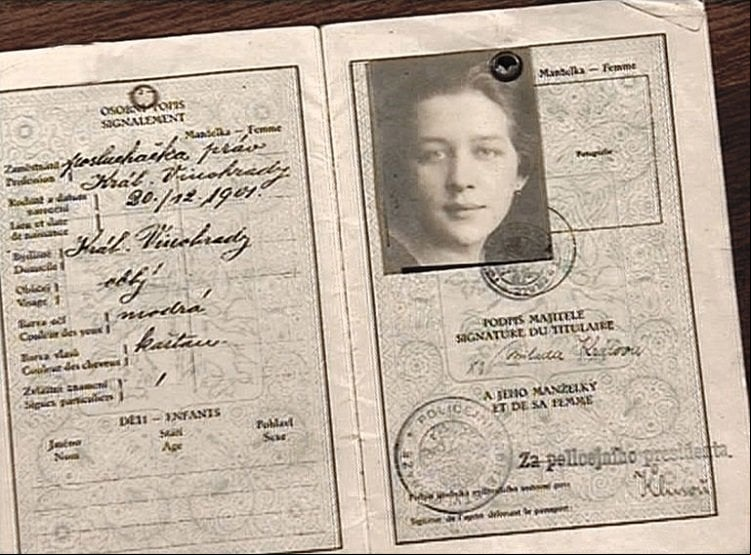 OSOBNÍ POPIS
SIGNALEMENT
Manželka — Femme
Zaměstnání
Profession
posluchačka práv
Král. Vinohrady
Rodiště a datum
narození
20./12. 1901.
Lieu et date
de naissance
Bydliště
Domicile
Král. Vinohrady
Obličej
Visage
oblý
Barva očí
Couleur des yeux
modrá
Barva vlasů
Couleur des cheveux
kaštan
Zvláštní znamení
Signes particuliers
/
DĚTI — ENFANTS
Jméno
Nom
Stáří
Age
Pohlaví
Sexe
Manželka — Femme
Fotografie
PODPIS MAJITELE
SIGNATURE DU TITULAIRE
Milada Králová
A JEHO MANŽELKY
ET DE SA FEMME
POLICEJNÍ
Za policejního presidenta.
Signature de l'agent délivrant le passeport: